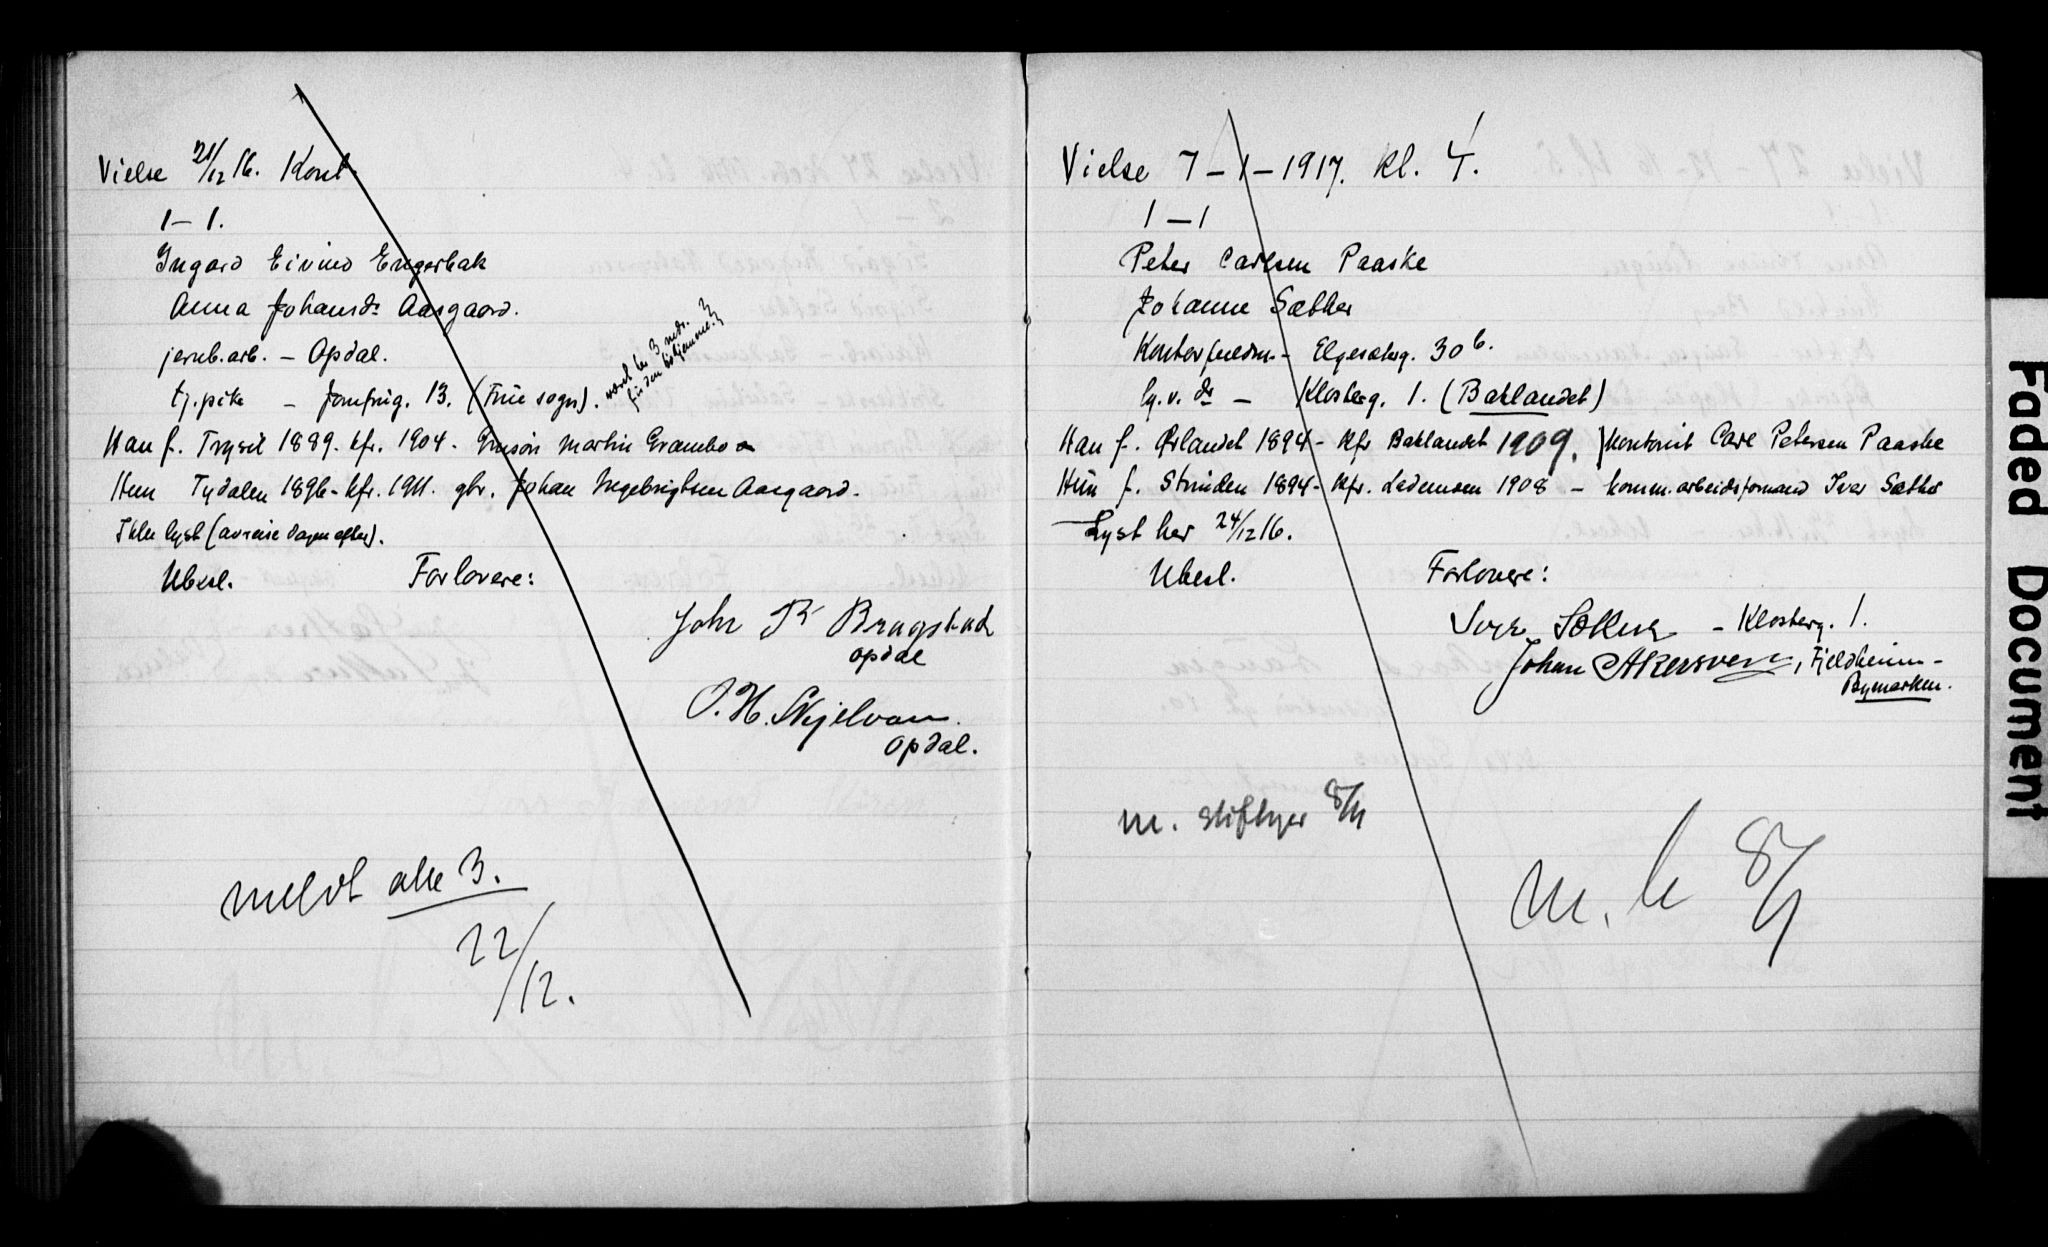 Vielse 21/12 16. Kont.
1 – 1.
Ingard Eivind Engerbak
Anna Johansdr Aasgaard.
jernb.arb. – Opdal.
tj.pike – Jomfrug. 13. (Frue sogn). været her 3 mdr.
før den tid hjemme.
Han f. Trysil 1889. kfr. 1904. Martin Grambo
Hun Tydalen 1896 – kfr. 1911. gbr. Johan Ingebrigtsen Aasgaard.
Ikke lyst (avreise dagen efter).
Ubesl. Forlovere:
John Bragstad
Opdal
O. H. Skjelvan.
Opdal.
meldt alle 3.
22/12.
Vielse 7 – 1 – 1917. kl. 4.
1 – 1
Peter Carlsen Paaske
Johanne Sæther
Kontorfuldm. – Elgesæterg. 30 b.
hj.v. dr – Klosterg. 1. (Baklandet)
Han f. Ørlandet 1894 – kfr Baklandet 1909. kontorist Carl Petersen Paaske
Hun f. Strinden 1894 – kfr. Lademoen 1908 – komm.arbeidsformand Iver Sæther
Lyst her 24/12 16.
Ubesl. Forlovere:
Iver Sæther – Klosterg. 1.
Johan Akersven, Fjeldheim –
Bymarken.
m. skifter 8/1
m. k 8/1
Faded Document